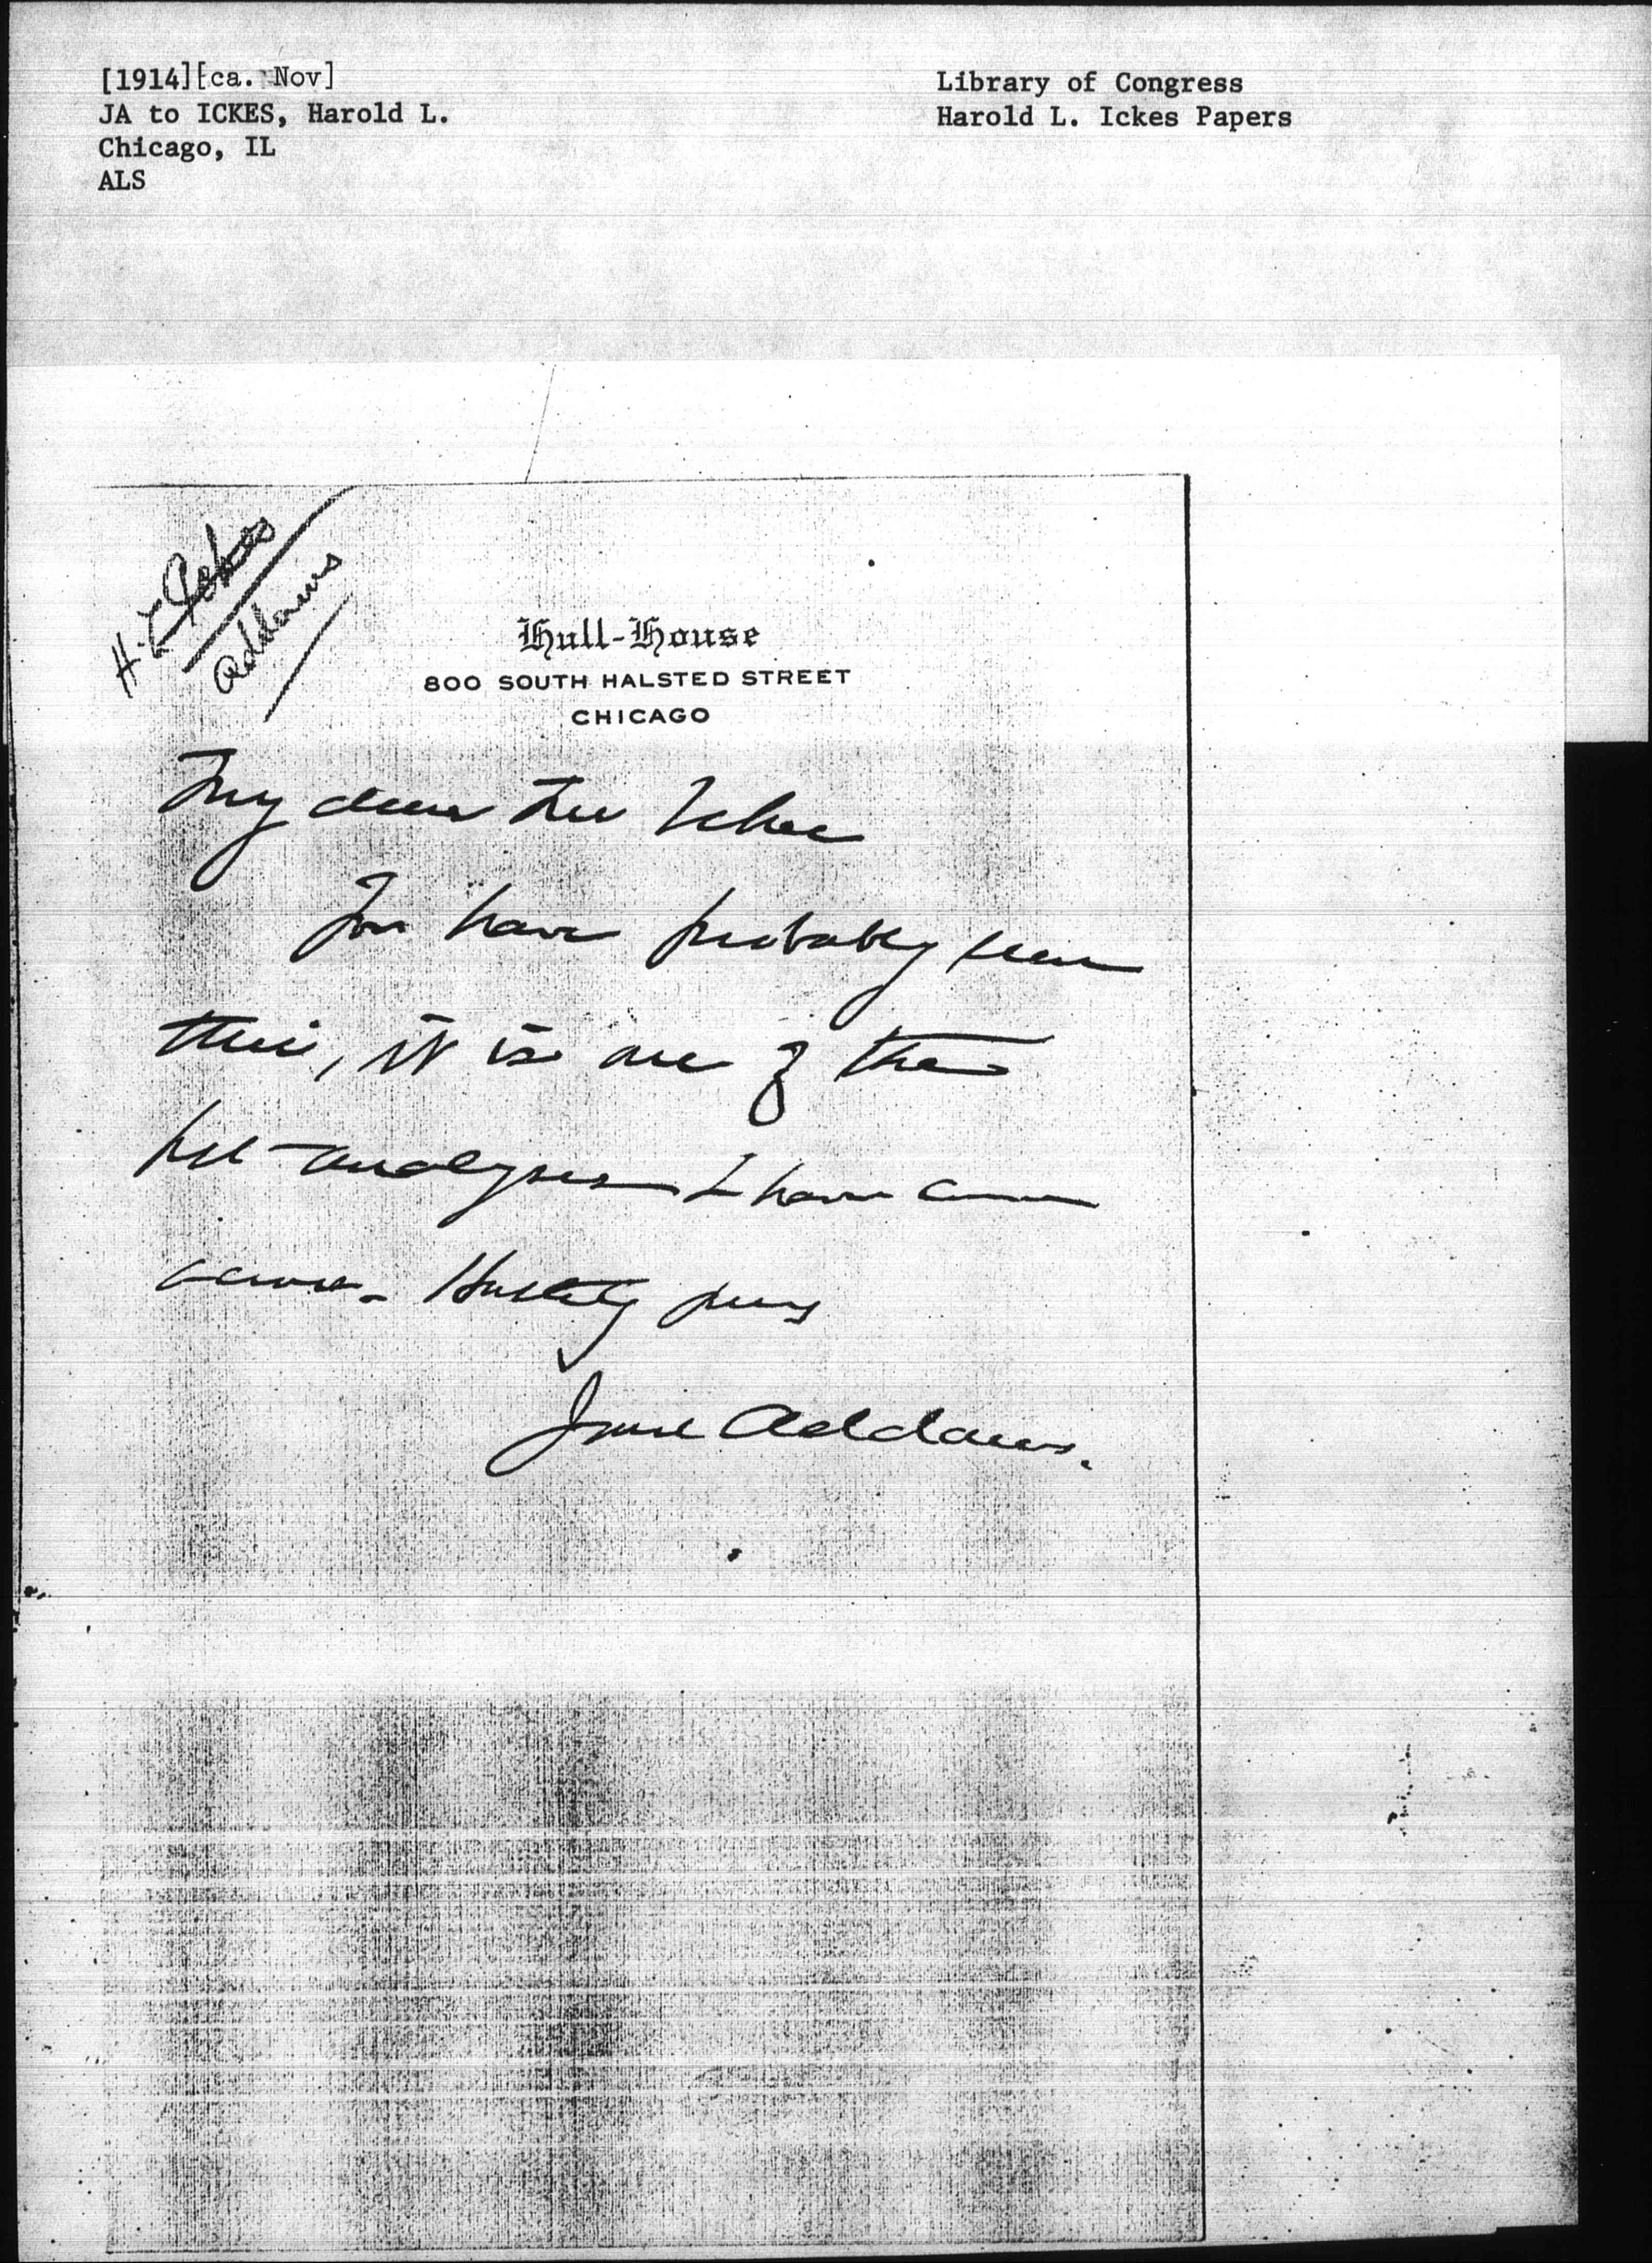 [1914][ca. Nov]
JA to ICKES, Harold L.
Chicago, IL
ALS
Library of Congress
Harold L. Ickes Papers
H. L Ickes
Addams
Hull-House
800 SOUTH HALSTED STREET
CHICAGO
My dear Mr Ickes
You have probably seen
this, it is one of the
best analyses I have come
across. Hastily yours
Jane Addams.